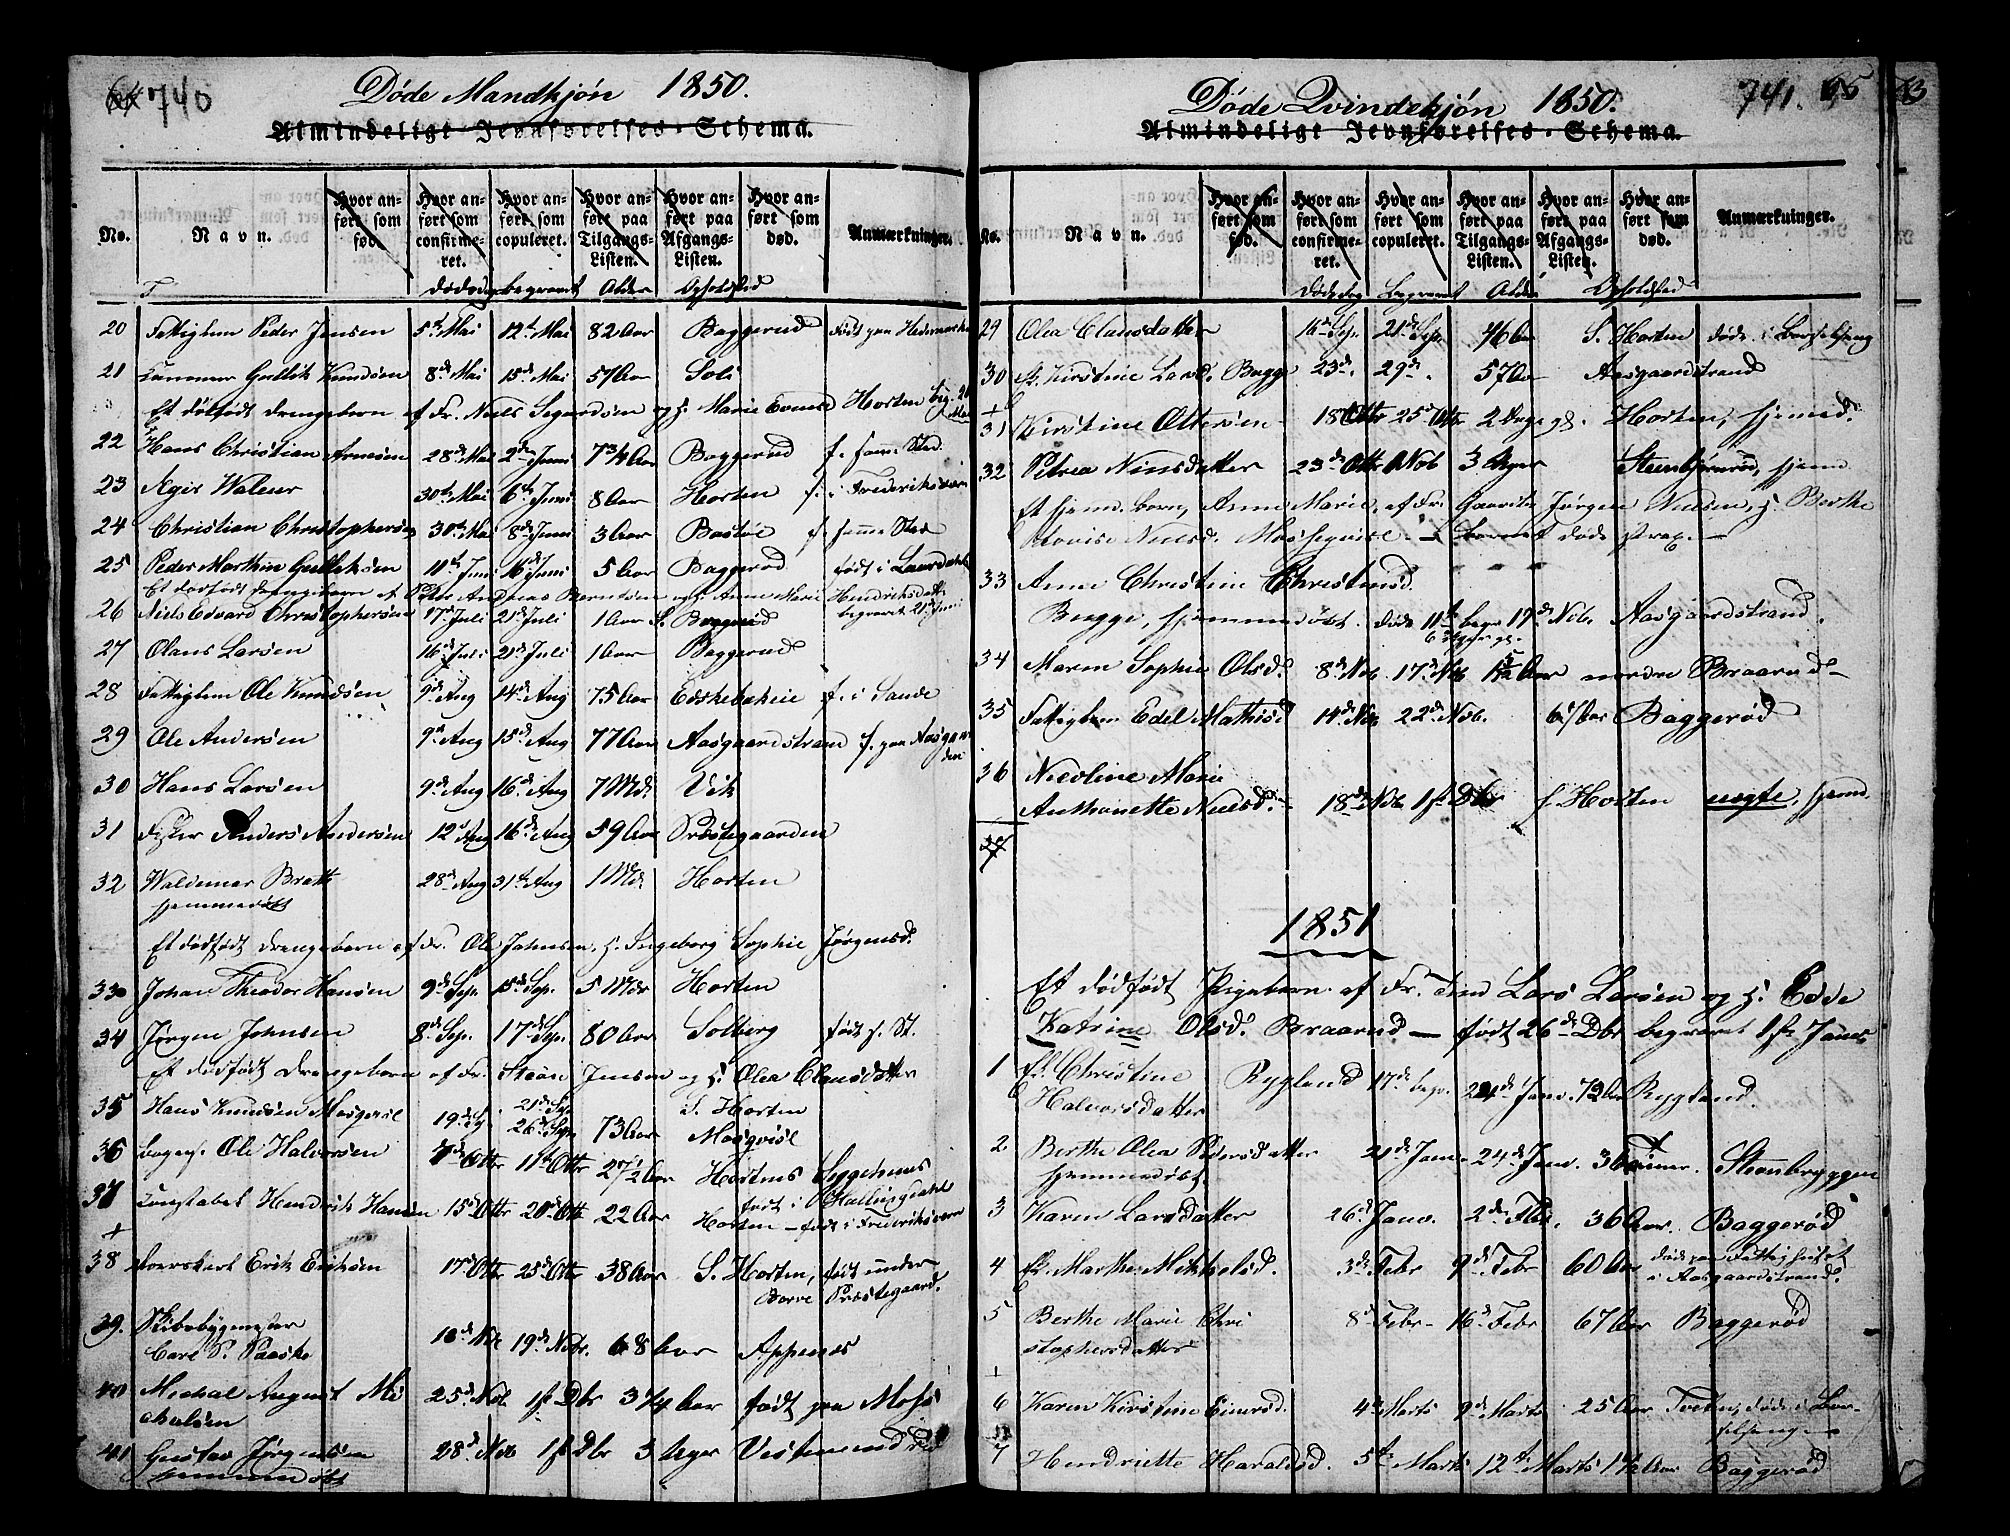 740
Døde Mandkjøn 1850.
Almindeligt Jevnførelses-Schema.
No. Navn. Hvor anført som fød. Hvor anført som confirmeret. Hvor anført som copuleret. Hvor anført paa Tilgangs-Listen. Hvor anført paa Afgangs-Listen. Hvor anført som død. Anmærkninger.
Dødsdag begravet Alder Opholdsted
20 Fattiglem Peder Jensen 5te Mai 12te Mai 82 Aar Baggerud født paa Hedemarken
21 Gullik Knudsen 8de Mai 15de Mai 57 Aar Sole
Et dødfødt drengebarn af Fr. Niels Sigurdsen og H. Marie Evensd Horten
22 Hans Christian Arnesen 28de Mai 2den Juni 7 3/4 Aar Baggerud f. samme Sted.
23 Aegir Waleur 30te Mai 6te Juni 8 Aar Horten f. i Frederiksværn
24 Christian Christophersen 30te Mai 8de Juni 3 Aar Bastøe f. samme Sted
25 Peder Marthin Gulliksen 11te Juni 16de Juni 5 Aar Baggerød født i Laurdahl
Et dødfødt drengebarn af Fr. Andreas Berntsen og H. Anne Marie Hendrichsdatt.
begravet 21de Juni
26 Niels Edvard Christophersen 17de Juli 21de Juli 1 Aar S. Baggerød
27 Olaus Larsen 16de Juli 21de Juli 1 Aar Baggerud
28 Fattiglem Ole Knudsen 9de Aug 14de Aug 75 Aar Eeskebakke f. i Sande
29 Ole Andersen 9de Aug 15de Aug 77 Aar Aasgaardstrand f. paa Aasgaarden
30 Hans Larsen 9de Aug 16de Aug 7 Md. Vik
31 Fisker Anders Andersen 12te Aug 16de Aug 59 Aar Præstegaarden
32 Waldemar Bratt 28de Aug 31te Aug 1 Md. Horten
hjemmedøbt
Et dødfødt drengebarn af Fr. Ole Johnsen, H. Ingeborg Sophie Jørgensd.
33 Johan Theodor Hansen 9de Sep. 15de Sep. 5 Mdr Horten
34 Jørgen Johnsen 8de Sep. 17de Sep. 80 Aar Solberg født s. St.
Et dødfødt drengebarn af Fr. Jensen og H. Olea Clausdatter
21de Sep S. Horten
35 Hans Knudsen 19de Sep. 26de Sep. 73 Aar
36 Ole Halvorsen 7de Octbr 11te Octbr 27 1/2 Aar Hortens Sygehuus
født i Hallingdahl
37 Constabel Hendrik Hansen 15de Octbr 20de Octb 22 Aar Horten - født i Frederiksværn
+
38 Erik Eriksen 17de Octbr 25de Octbr 38 Aar S. Horten, født under
Borre Præstegaard.
39. Skibsbygmester
Carl P. Paaske 10de Nov 19de Novbr. 68 Aar Appenæs
40 Michal August Mi- 25de Nov 1ste Dbr 3 1/4 Aar født paa Moss
chalsen
41 Gustav Jørgensen 28de Nov 1ste Dbr 3 Uger
hjemmedøbt
741. 65
Døde Qvindekjøn 1850.
Almindeligt Jevnførelses-Schema.
No. Navn. Hvor anført som fød. Hvor anført som confirmeret. Hvor anført som copuleret. Hvor anført paa Tilgangs-Listen. Hvor anført paa Afgangs-Listen. Hvor anført som død. Anmærkninger.
Dødsdag Begravet Alder Opholdsted
29 Olea Clausdatter 16de Sep. 21de Sep. 46 Aar S. Horten døde i Barselseng
30 Kirstine Larsd. Bugge 23de. 29de. 57 Aar Aasgaardstrand
+
31 Kirstine Ottersen 18 Octbr 25de Octbr 2 Dage gl. Horten, hjemmed.
32 Petrea Nielsdatter 23de Octbr Nov 3 Uger hjemd
et hjemd. barn, Anne Marie, af Fr. Jørgen Nielsen, H. Berthe
Lovise Nielsd. - barnet døde strax. -
33 Anne Christine Christensd.
Bugge, hjemmedøbt. døde 11te begr. 17de Nov. Aasgaardstrand.
6 Uger gl.
34 Maren Sophie Olsd. 8de Nov. 17de Nov 1 5/12 Aar nordre Braarud -
35 Fattiglem Edel Mathisd 14de Nov. 22de Nov. 67 Aar Baggerød
36 Nicoline Marie
Anthonette Nielsd. - 18de Nov 1ste Dbr f. Horten uægte, hjemd.
37
1851
Et dødfødt Pigebarn af Fr. Lars Larsen og H. Edde
Katrine Olsd. Braarud - født 26de Dbr begravet 1ste Januar
1 Christine Rygland 17de begr. 24de Janv. 73 Aar Rygland.
Halvorsdatter
2 Berthe Olea Pedersdatter 21de Janv. 24de Janv. 36 Timer. Steenbryggen
hjemmedøbt.
3 Karen Larsdatter 26de Janv. 2den Feb. 36 Aar. Baggerød
4 Marthe Mikkelsd. 3de Febr 9de Febr 60 Aar døde paa Fattighuset
i Aasgaardstrand.
5 Berthe Marie Chri- 8de Febr - 16de Febr 67 Aar Baggerød
stophersdatter
+
6 Karen Kirstine Einersd. 4de Marts 9de Marts 25 Aar Tveten, døde i Bar-
selseng -
7 Hendriette Haraldsd. 5te Marts 12te Marts 1 1/2 Aar Baggerød